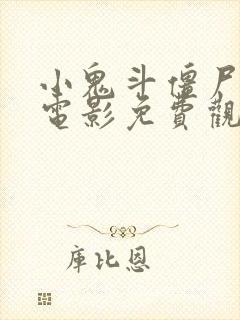 小鬼斗僵尸
電影免費觀
庫比恩